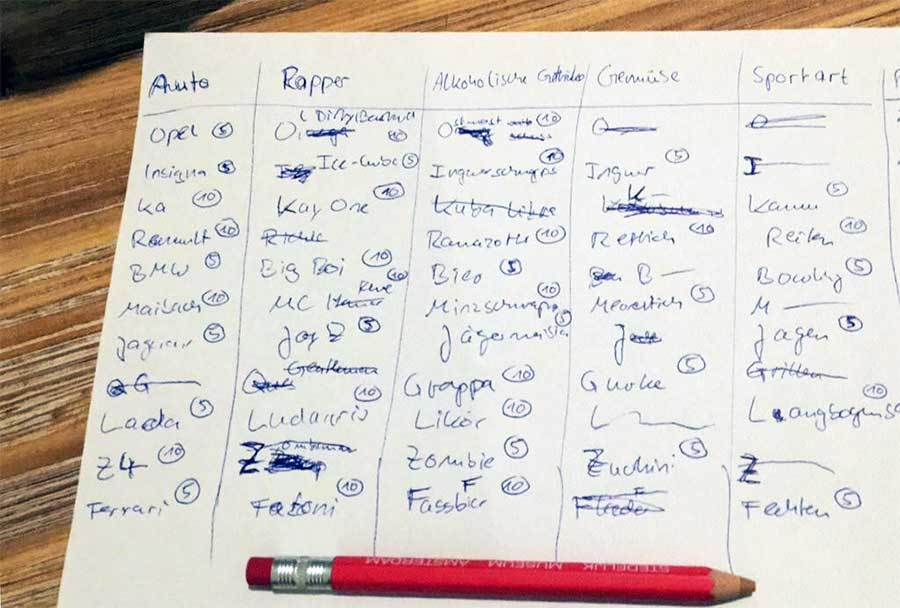 Auto Rapper Alkoholische Getränke Gemüse Sportart
Opel 5 O 10 O 10 O O
Insigna 5 Ice-Cube 5 Ingwerschnaps 10 Ingwer 5 I
Ka 10 Kay One 10 Kuba Libre K Kanu 5
Renault 10 Ramazotti 10 Rettich 10 Reiten 10
BMW 5 Big Boi 10 Bier 5 B Bowling 5
Maibach 10 MC Rene 10 Minzschnaps Meerettich 5 M
Jaguar 5 Jay Z 5 Jägermeister 5 J Jagen 5
G Gentleman Grappa 10 Gurke 5 Grillen
Lada 5 Ludacris 10 Likör 10 L Langbogenschi 10
Z4 10 Z Zombie 5 Zuchini 5 Z
Ferrari 5 Fatoni 10 Fassbier 10 F Fechten 5
STEDELIJK MUSEUM AMSTERDAM